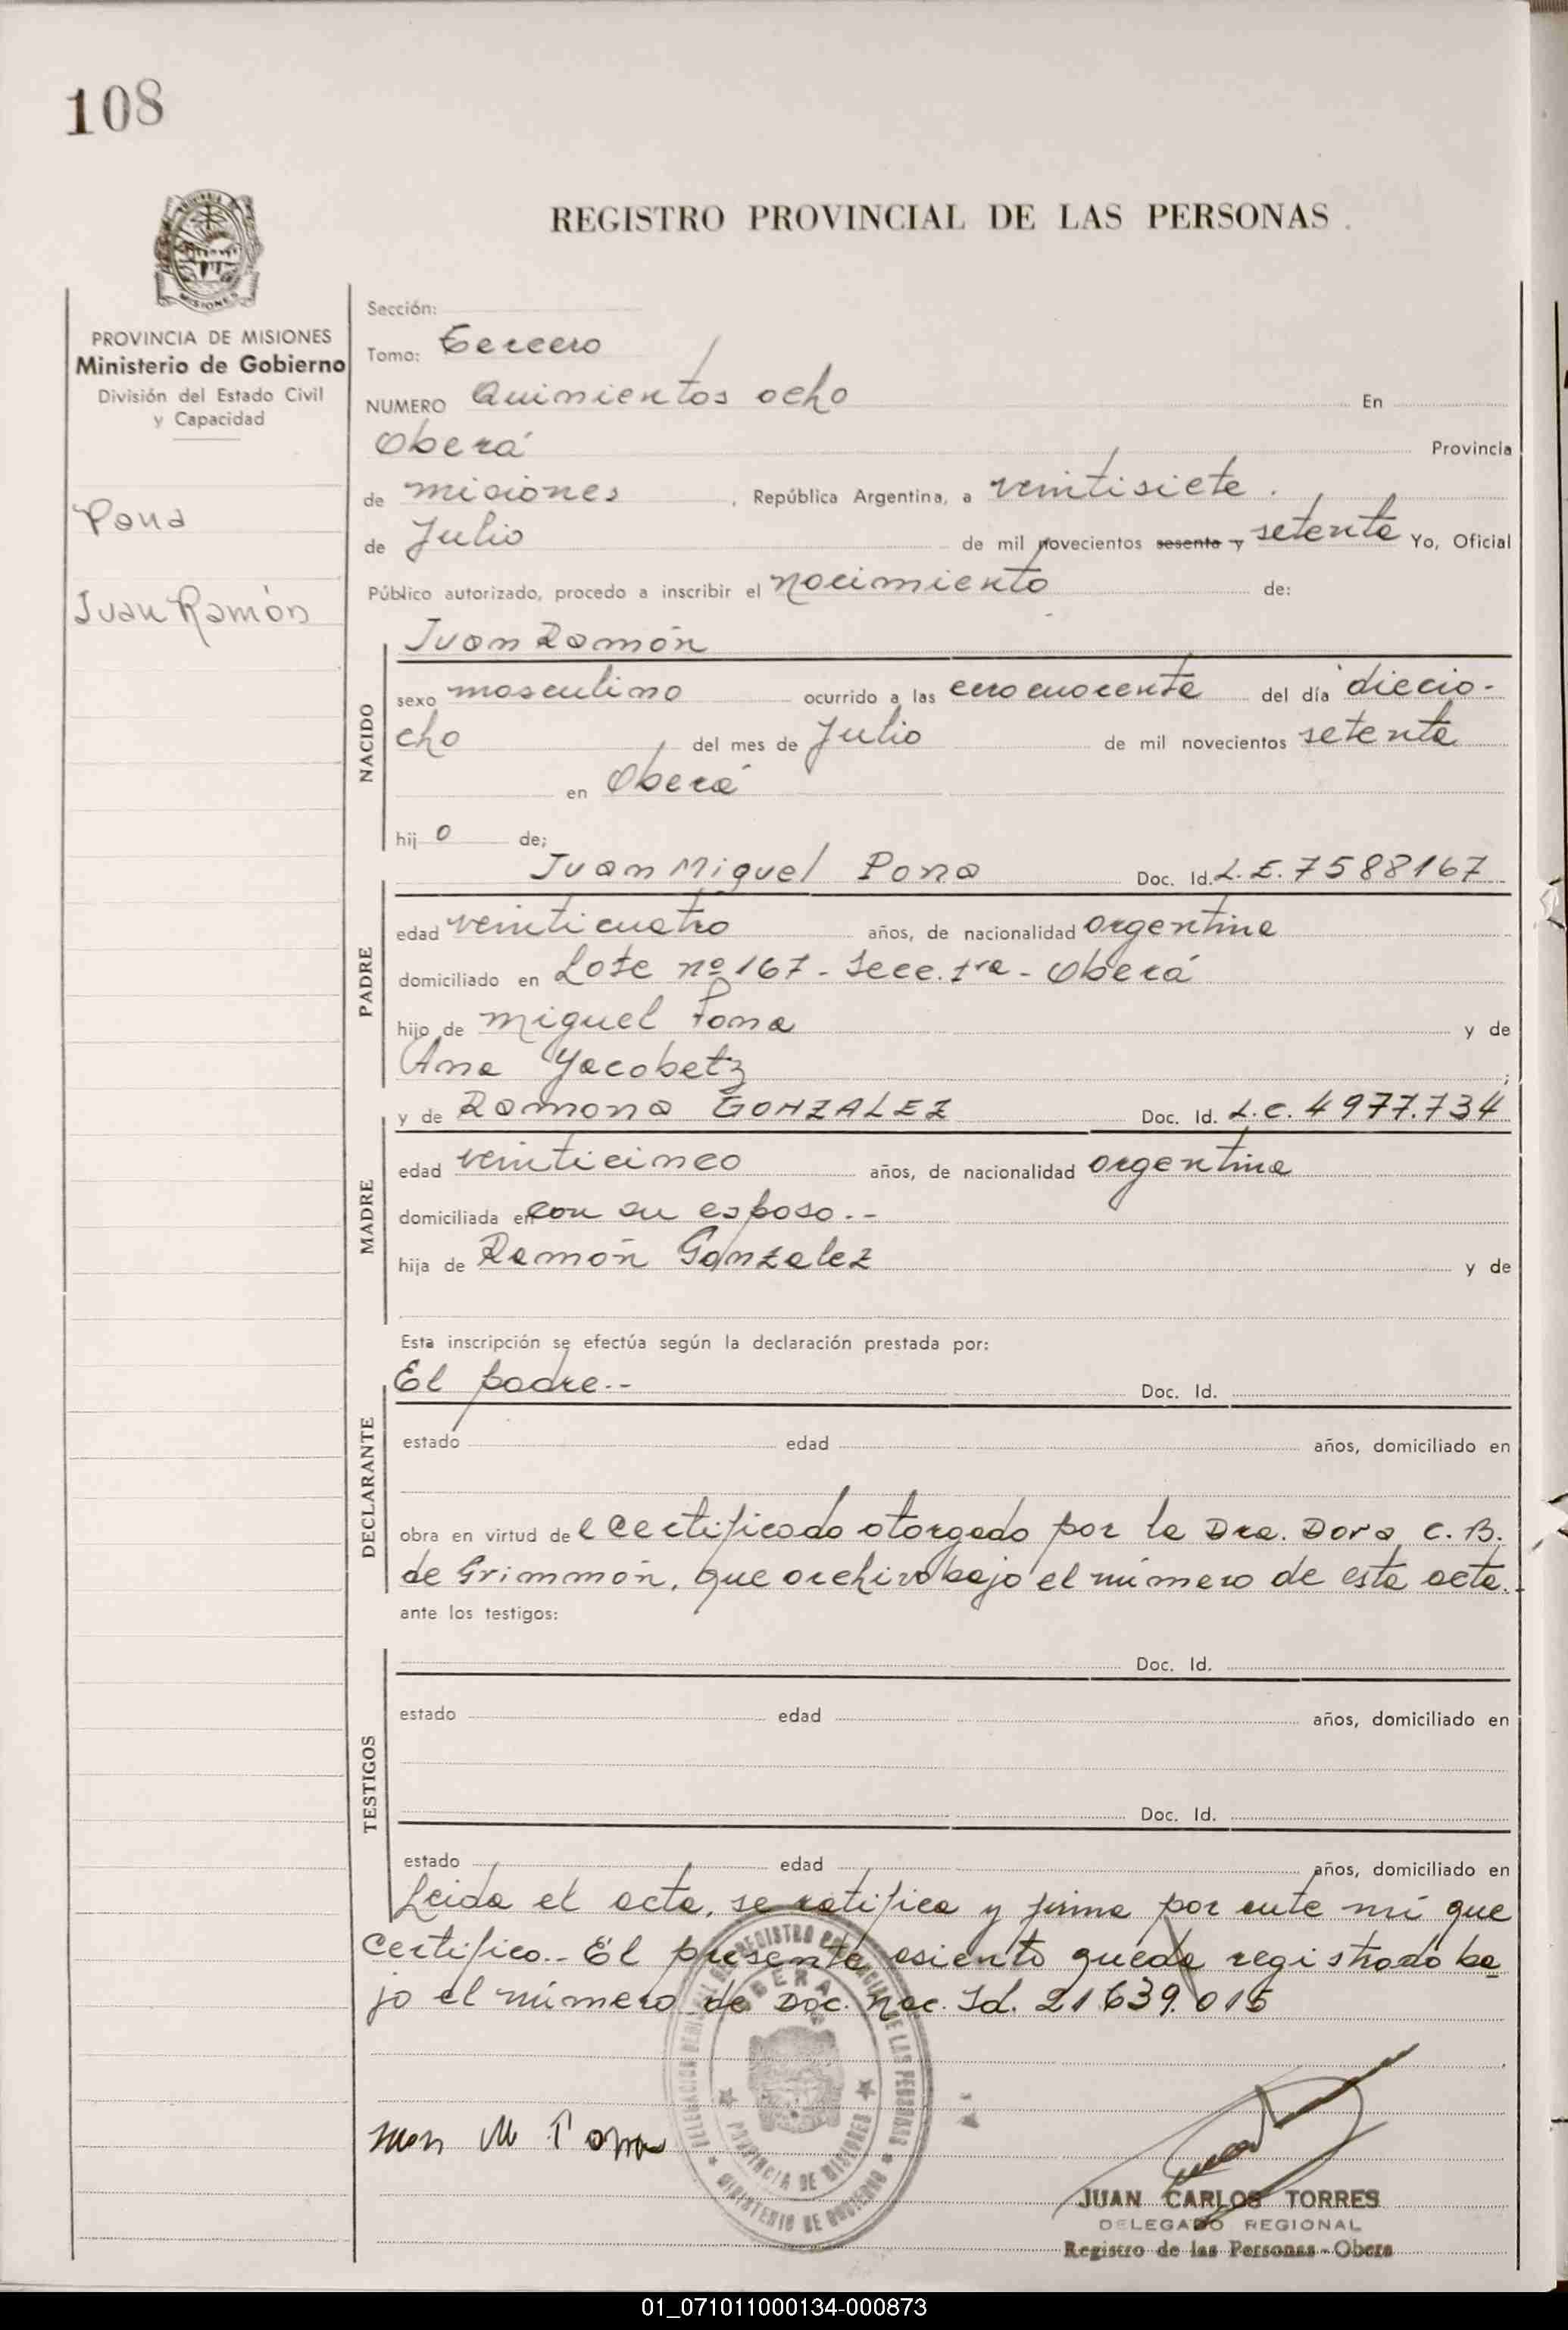 108
REGISTRO PROVINCIAL DE LAS PERSONAS
MISIONES
PROVINCIA DE MISIONES
Ministerio de Gobierno
División del Estado Civil
y Capacidad
Pona
Juan Ramón
Sección:
Tomo: Tercero
NUMERO Quinientos ocho En
Oberá Provincia
de misiones , República Argentina, a veintisiete .
de Julio de mil novecientos sesenta y setenta Yo, Oficial
Público autorizado, procedo a inscribir el nacimiento de:
Juan Ramón
NACIDO
sexo masculino ocurrido a las cero cuarenta del día diecio-
cho del mes de Julio de mil novecientos setenta
en Oberá
hij o de;
Juan Miguel Pona Doc. Id. L.E. 7588167
PADRE
edad veinticuatro años, de nacionalidad argentina
domiciliado en Lote nº 167 - Secc. 1ra - Oberá
hijo de Miguel Pona y de
Ana Yacobetz ;
y de Ramona GONZALEZ Doc. Id. L.C. 4977.734
MADRE
edad veinticinco años, de nacionalidad argentina
domiciliada en con su esposo.--
hija de Ramón Gonzalez y de
Esta inscripción se efectúa según la declaración prestada por:
El padre.-- Doc. Id.
DECLARANTE
estado edad años, domiciliado en
obra en virtud de l certificado otorgado por la Dra. Dora C. B.
de Grimmón, que archivo bajo el número de esta acta.
ante los testigos:
Doc. Id.
TESTIGOS
estado edad años, domiciliado en
Doc. Id.
estado edad años, domiciliado en
Leida el acta, se ratifica y firma por ante mí que
certifico.- El presente asiento queda registrado ba
jo el número de Doc. Nac. Id. 21.639.015
DELEGACION REGIONAL DEL REGISTRO PROVINCIAL DE LAS PERSONAS
OBERA
PROVINCIA DE MISIONES
MINISTERIO DE GOBIERNO
Juan M Pona
JUAN CARLOS TORRES
DELEGADO REGIONAL
Registro de las Personas - Obera
01_071011000134-000873